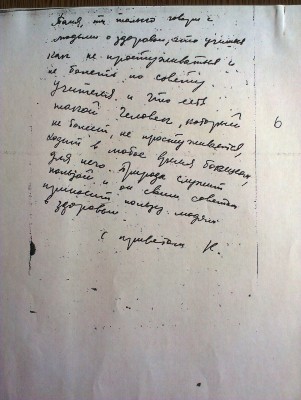 Ваня, ты только говори с
людьми о здоровьи, это учишься
как не простуживаться и
не болеть по совету
учителя и что есть
такой Человек который
не болеет, не простужается,
ходит в любое время босиком,
для него Природа служит
пользой и он своим советом
приносит пользу людям
о здоровьи.
С приветом И.
6